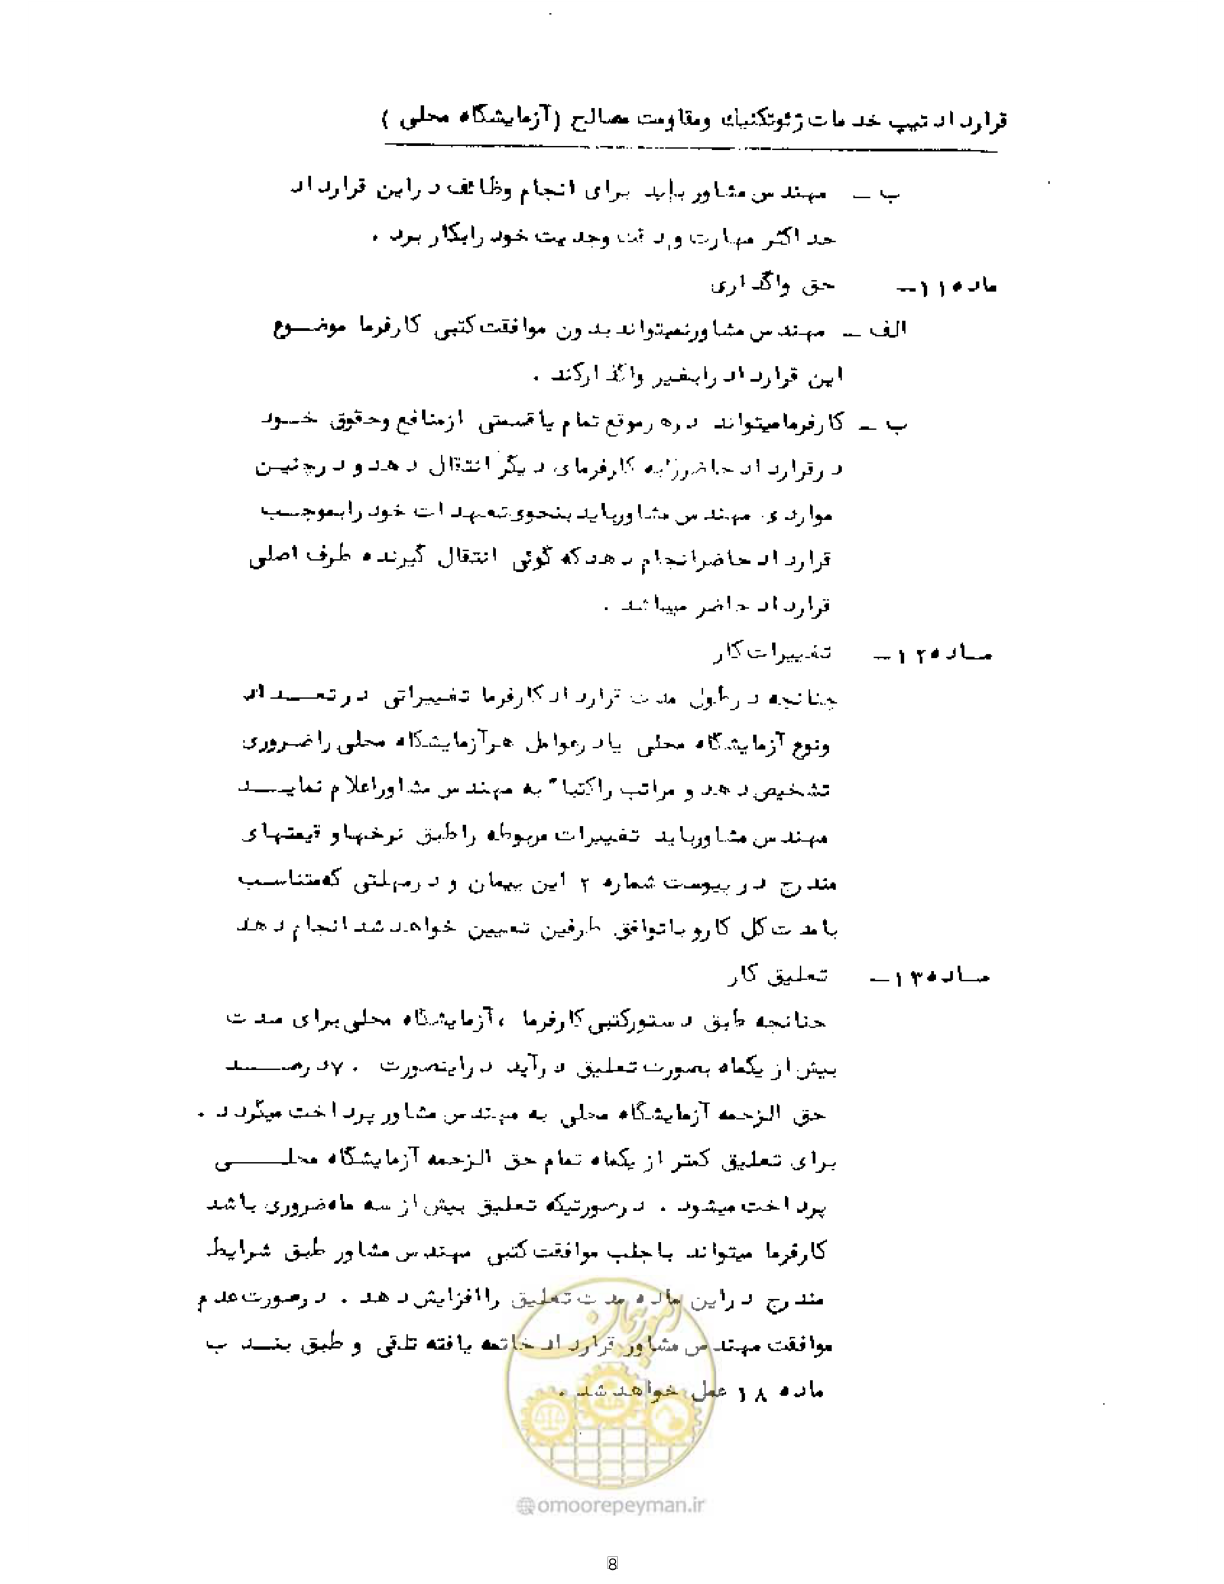 قرارداد تیپ خدمات ژئوتکنیک ومقاومت مصالح (آزمایشگاه محلی )
ب ـ مهندس مشاور باید برای انجام وظائف دراین قرارداد
حداکثر مهارت ودقت وجدیت خود رابکار برد .
ماده ۱۱ـ حق واگذاری
الف ـ مهندس مشاورنمیتواند بدون موافقت کتبی کارفرما موضوع
این قرارداد رابغیر واگذارکند .
ب ـ کارفرمامیتواند درهرموقع تمام یاقسمتی ازمنافع وحقوق خود
درقرارداد حاضررابه کارفرمای دیگر انتقال دهد و درچنین
مواردی مهندس مشاورباید بنحوی تعهدات خود رابموجب
قرارداد حاضرانجام دهد که گوئی انتقال گیرنده طرف اصلی
قرارداد حاضر میباشد .
ماده ۱۲ـ تغییرات کار
چنانچه درطول مدت قرارداد کارفرما تغییراتی درتعداد
ونوع آزمایشگاه محلی یادرعوامل هرآزمایشگاه محلی راضروری
تشخیص دهد و مراتب راکتبا" به مهندس مشاوراعلام نماید
مهندس مشاورباید تغییرات مربوطه راطبق نرخهاو قیمتهای
مندرج در پیوست شماره ۲ این پیمان و درمهلتی که متناسب
بامدت کل کارو باتوافق طرفین تعیین خواهد شد انجام دهد
ماده ۱۳ـ تعلیق کار
چنانچه طبق دستورکتبی کارفرما ، آزمایشگاه محلی برای مدت
بیش از یکماه بصورت تعلیق درآید دراینصورت ۷۰ درصد
حق الزحمه آزمایشگاه محلی به مهندس مشاور پرداخت میگردد .
برای تعلیق کمتر از یکماه تمام حق الزحمه آزمایشگاه محلی
پرداخت میشود . درصورتیکه تعلیق بیش از سه ماه ضروری باشد
کارفرما میتواند باجلب موافقت کتبی مهندس مشاور طبق شرایط
مندرج دراین ماده مدت تعلیق راافزایش دهد . درصورت عدم
موافقت مهندس مشاور قرارداد خاتمه یافته تلقی و طبق بند ب
ماده ۱۸ عمل خواهد شد .
امور پیمان
@omoorepeyman.ir
8